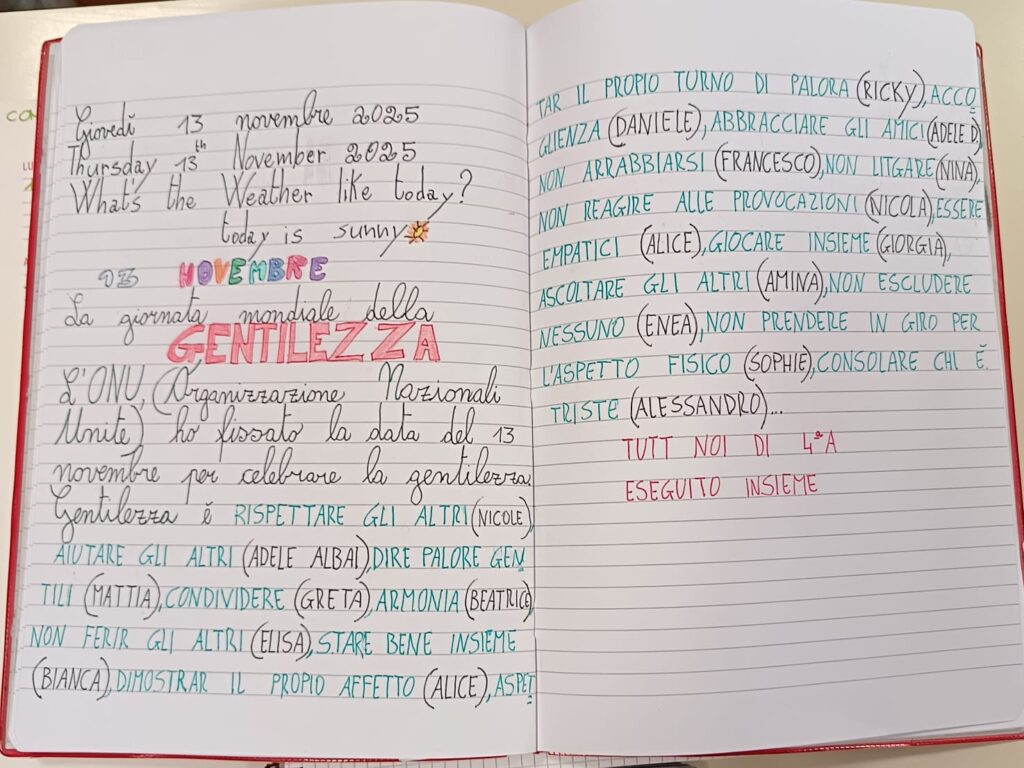 Giovedì 13 novembre 2025
Thursday 13th November 2025
What's the Weather like today?
today is sunny
13 NOVEMBRE
La giornata mondiale della
GENTILEZZA
L'ONU, (Organizzazione Nazionali
Unite) ho fissato la data del 13
novembre per celebrare la gentilezza.
Gentilezza è RISPETTARE GLI ALTRI (NICOLE),
AIUTARE GLI ALTRI (ADELE ALBAI), DIRE PALORE GEN
TILI (MATTIA), CONDIVIDERE (GRETA), ARMONIA (BEATRICE),
NON FERIR GLI ALTRI (ELISA), STARE BENE INSIEME
(BIANCA), DIMOSTRAR IL PROPIO AFFETTO (ALICE), ASPET
TAR IL PROPIO TURNO DI PALORA (RICKY), ACCO
GLIENZA (DANIELE), ABBRACCIARE GLI AMICI (ADELE D),
NON ARRABBIARSI (FRANCESCO), NON LITGARE (NINA),
NON REAGIRE ALLE PROVOCAZIONI (NICOLA), ESSERE
EMPATICI (ALICE), GIOCARE INSIEME (GIORGIA),
ASCOLTARE GLI ALTRI (AMINA), NON ESCLUDERE
NESSUNO (ENEA), NON PRENDERE IN GIRO PER
L'ASPETTO FISICO (SOPHIE), CONSOLARE CHI È
TRISTE (ALESSANDRO)...
TUTT NOI DI 4ªA
ESEGUITO INSIEME